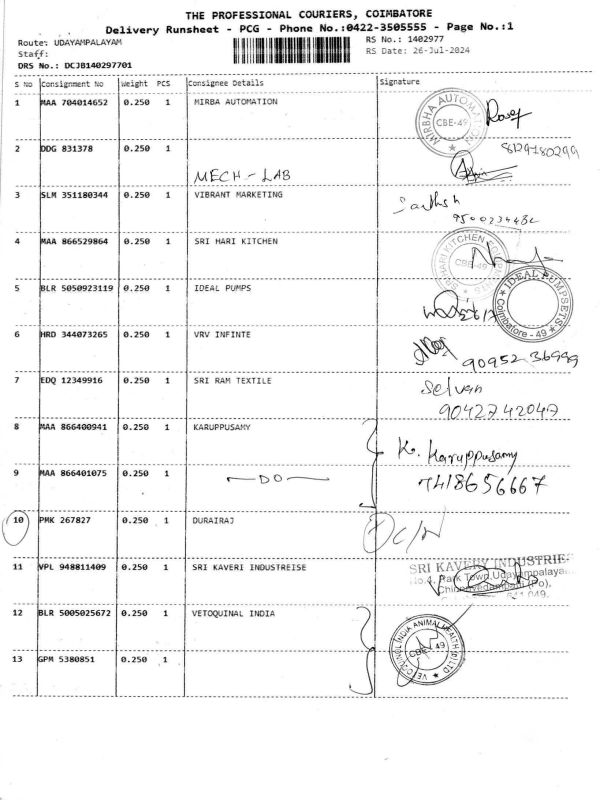 THE PROFESSIONAL COURIERS, COIMBATORE
Delivery Runsheet - PCG - Phone No.:0422-3505555 - Page No.:1
Route: UDAYAMPALAYAM
RS No.: 1402977
Staff:
RS Date: 26-Jul-2024
DRS No.: DCJB140297701
S No Consignment No Weight PCS Consignee Details Signature
1 MAA 704014652 0.250 1 MIRBA AUTOMATION
MIRBHA AUTOMATION CBE-49
2 DDG 831378 0.250 1
8129780299
MECH - LAB
3 SLM 351180344 0.250 1 VIBRANT MARKETING
4 MAA 866529864 0.250 1 SRI HARI KITCHEN
SRI HARI KITCHEN CBE-49
5 BLR 5050923119 0.250 1 IDEAL PUMPS
IDEAL PUMPSETS Coimbatore - 49
6 HRD 344073265 0.250 1 VRV INFINTE
90952 36999
7 EDQ 12349916 0.250 1 SRI RAM TEXTILE Selvan
90427 42047
8 MAA 866400941 0.250 1 KARUPPUSAMY
K. Karuppusamy
9 MAA 866401075 0.250 1 — DO — 7418656667
10 PMK 267827 0.250 1 DURAIRAJ
C/N
11 VPL 948811409 0.250 1 SRI KAVERI INDUSTREISE SRI KAVERY INDUSTRIE
No.4, Park Town, Udayampalayam
641 049.
12 BLR 5005025672 0.250 1 VETOQUINAL INDIA
VETOQUINOL INDIA ANIMAL HEALTH (P) LTD CBE 49
13 GPM 5380851 0.250 1